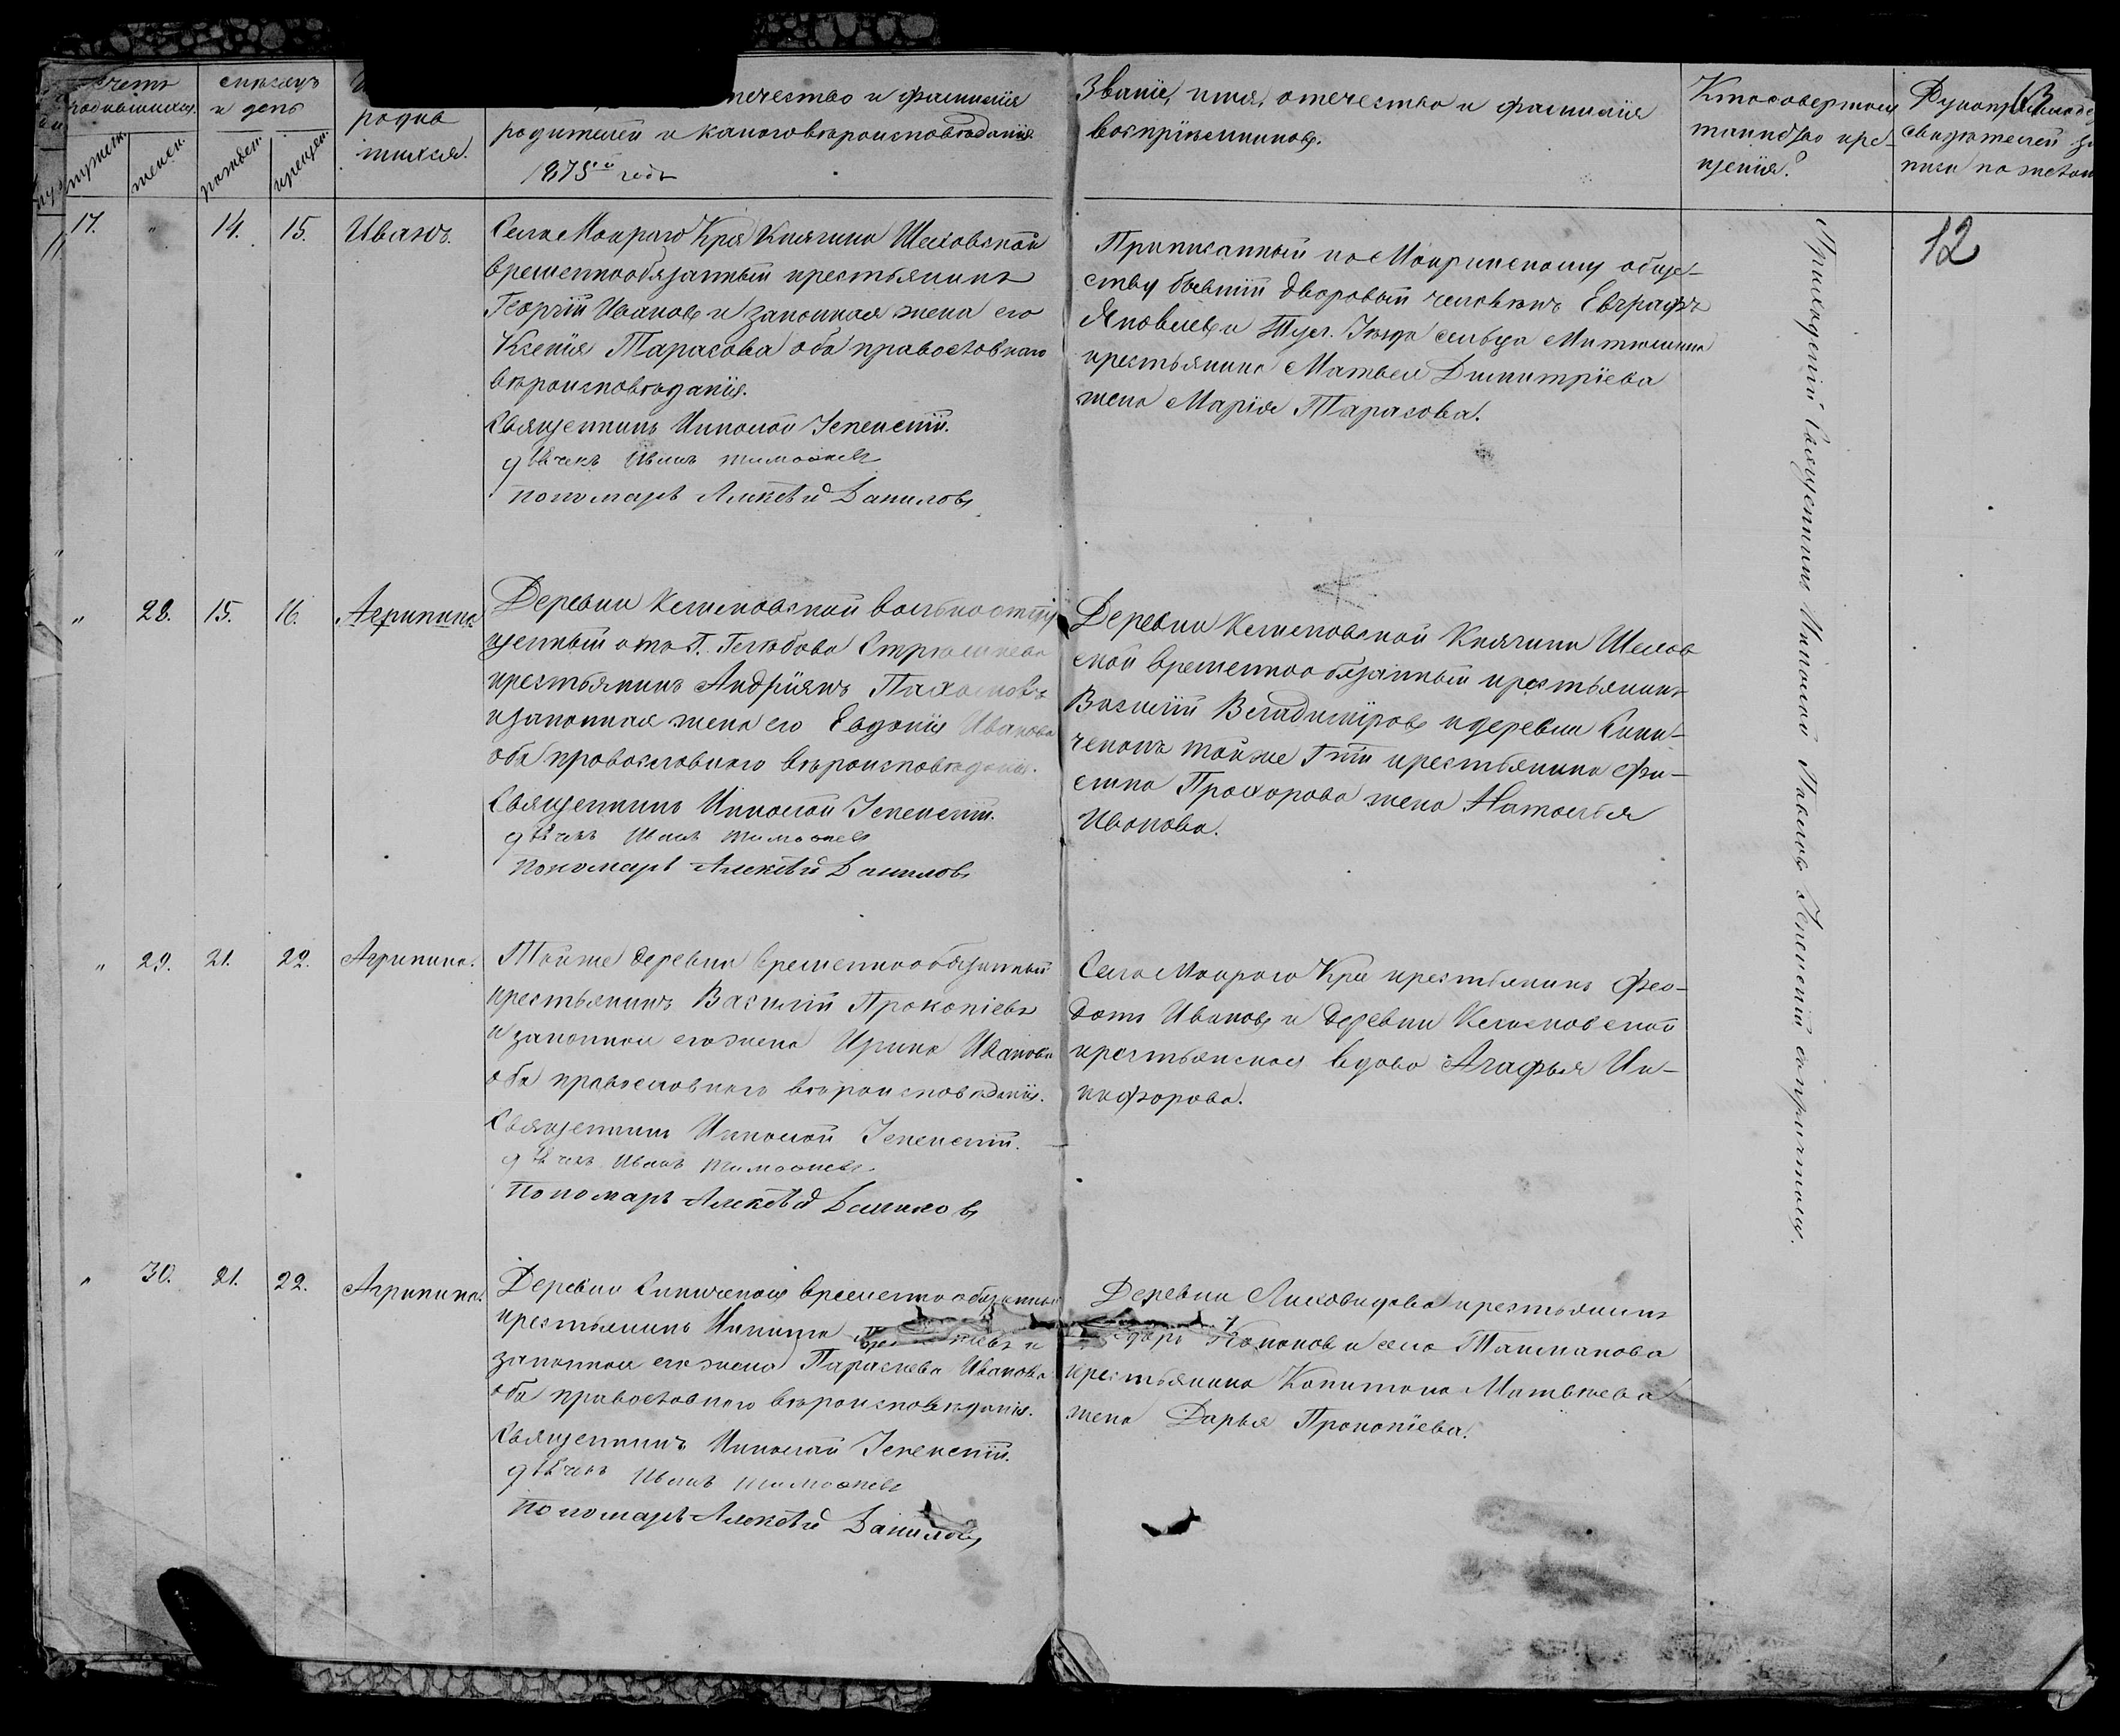 Счетъ родившихся.
мужеск.
женск.
Мѣсяцъ и день
рожден.
крещен.
родив
шихся.
отчество и фамилія
родителей и какого вѣроисповѣданія
1875го года
Званіе, имя, отечество и фамилія
воспріемниковъ.
Кто совершалъ
таинство кре-
щенія?
свидѣтелей за
писи по желан
12
17.
"
14.
15.
Иванъ.
Села Мокраго Кря Княгини Шаховской
временнообязанный крестьянинъ
Георгій Ивановъ и законная жена его
Ксенія Тарасова оба православнаго
вѣроисповѣданія.
Священникъ Николай
дьячекъ Иванъ Тимофеевъ
пономарь Алексѣй Даниловъ
Приписанный по Мокринскому обще-
ству бывшій дворовый человѣкъ Евграфъ
Яковлевъ и сельца
крестьянина Матвея Димитріева
жена Марія Тарасова.
"
28.
15.
16.
Агрипина
Деревни вольноотпу
щенный отъ Г.
крестьянинъ Андріянъ Пахомовъ
и законная жена его Евдокія Иванова
оба православнаго вѣроисповѣданія.
Священникъ Николай
дьячекъ Иванъ Тимофеевъ
Пономарь Алексѣй Даниловъ
Деревни Княгини Шахов
ской временнообязанный крестьянинъ
Василій Владиміровъ и деревни
тойже Гжи крестьянина Фи-
Прохорова жена Наталья
Иванова.
"
29.
21.
22.
Агрипина.
Тойже деревни временнообязанный
крестьянинъ Василій Прокопіевъ
и законная его жена Ирина Иванова
оба православнаго вѣроисповѣданія.
Священникъ Николай
дьячекъ Иванъ Тимофеевъ
Пономарь Алексѣй Даниловъ
Села Мокраго Кря крестьянинъ Фео-
дотъ Ивановъ и деревни
крестьянская вдова Агафья Ни-
кифорова.
"
30.
21.
22.
Агрипина.
Деревни временнообязанный
крестьянинъ Никита и
законная его жена Параскева Иванова
оба православнаго вѣроисповѣданія.
Священникъ Николай
дьячекъ Иванъ Тимофеевъ
Пономарь Алексѣй Даниловъ
Деревни Лиховидова крестьянинъ
Кононовъ и села Ташманова
крестьянина Капитона Матвѣева
жена Дарья Прокопіева.
Приходскій Священникъ Николай Павловъ съ причтомъ.